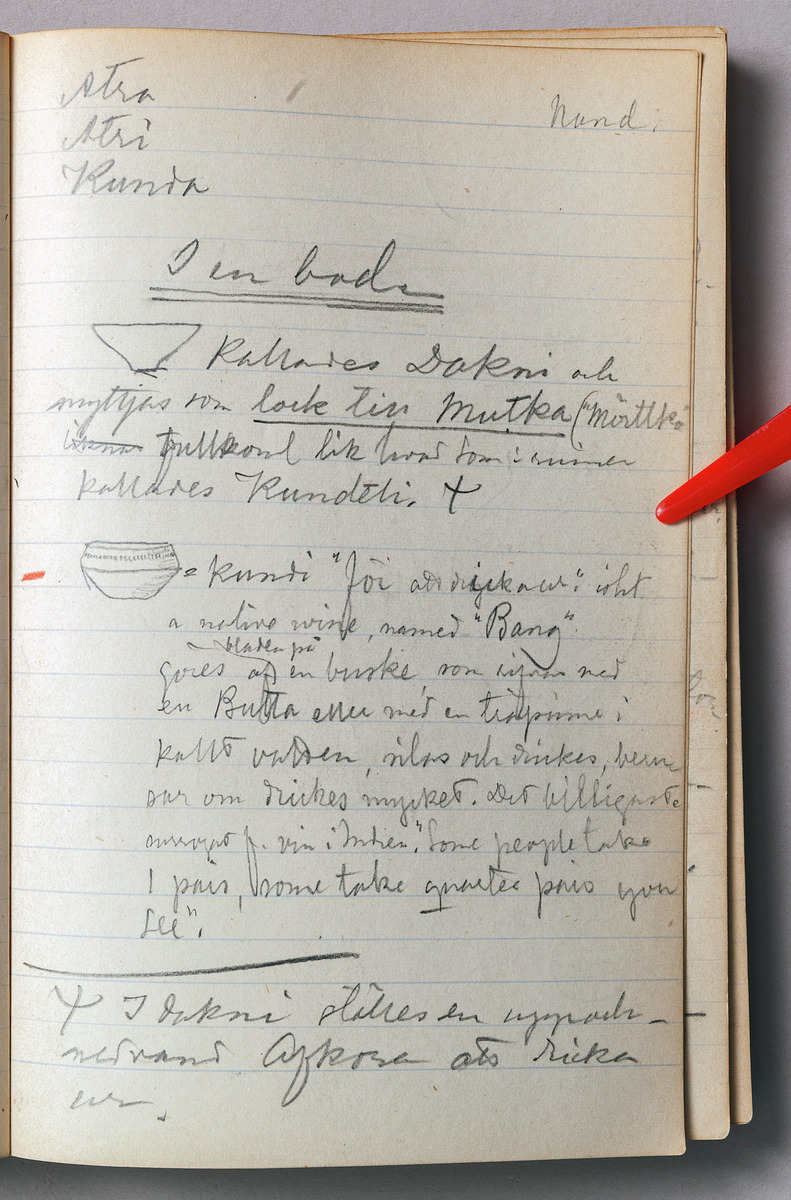 Atra
Nand.
Atri
Kunda
I en bod.
kallades Dakni och
nyttjas som lock till Mutka ("Mörttkå
fullkoml lik hvad som i
kallades Kundeli. +
= Kundi "för att dricka ur". ibl.
a native wine, named "Bang"
bladen på
göres af en buske som rifvas med
en Butta eller med en träpinne i
kallt vatten, silas och drickes, beru-
sar om drickes mycket. Det billigaste
surrogat f. vin i Indien. "Some people take
1 pais, some take quarter pais you
see".
+ I dakni ställes en upp och-
nedvänd Afkora att dricka
ur.